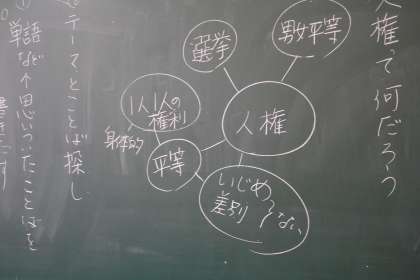 人権って何だろう
男女平等
選挙
人権
1人1人の
権利
身体的
平等
いじめ
差別
テーマとことば探し
単語など思いついたことばを